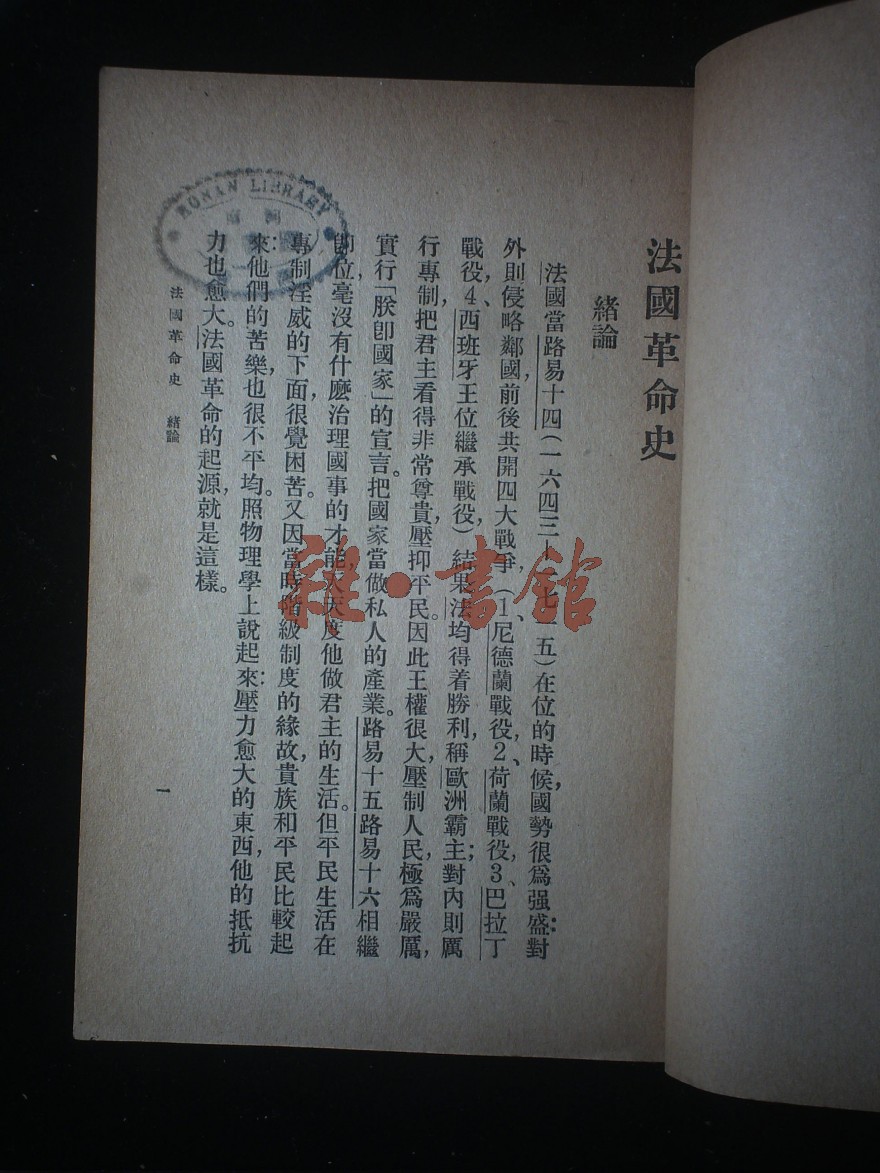 法國革命史
緒論
法國當路易十四(一六四三—一七一五)在位的時候,國勢很爲强盛:對
外則侵略鄰國,前後共開四大戰爭,(1、尼德蘭戰役,2、荷蘭戰役,3、巴拉丁
戰役,4、西班牙王位繼承戰役,)結果法均得着勝利,稱歐洲霸主;對內則厲
行專制,把君主看得非常尊貴,壓抑平民。因此王權很大,壓制人民,極爲嚴厲,
實行「朕卽國家」的宣言。把國家當做私人的產業。路易十五路易十六相繼
卽位,毫沒有什麽治理國事的才能,天天度他做君主的生活。但平民生活在
專制淫威的下面,很覺困苦。又因當時階級制度的緣故,貴族和平民比較起
來:他們的苦樂,也很不平均。照物理學上說起來:壓力愈大的東西,他的抵抗
力也愈大。法國革命的起源,就是這樣。
法國革命史 緒論
一
HONAN LIBRARY
雜·書館